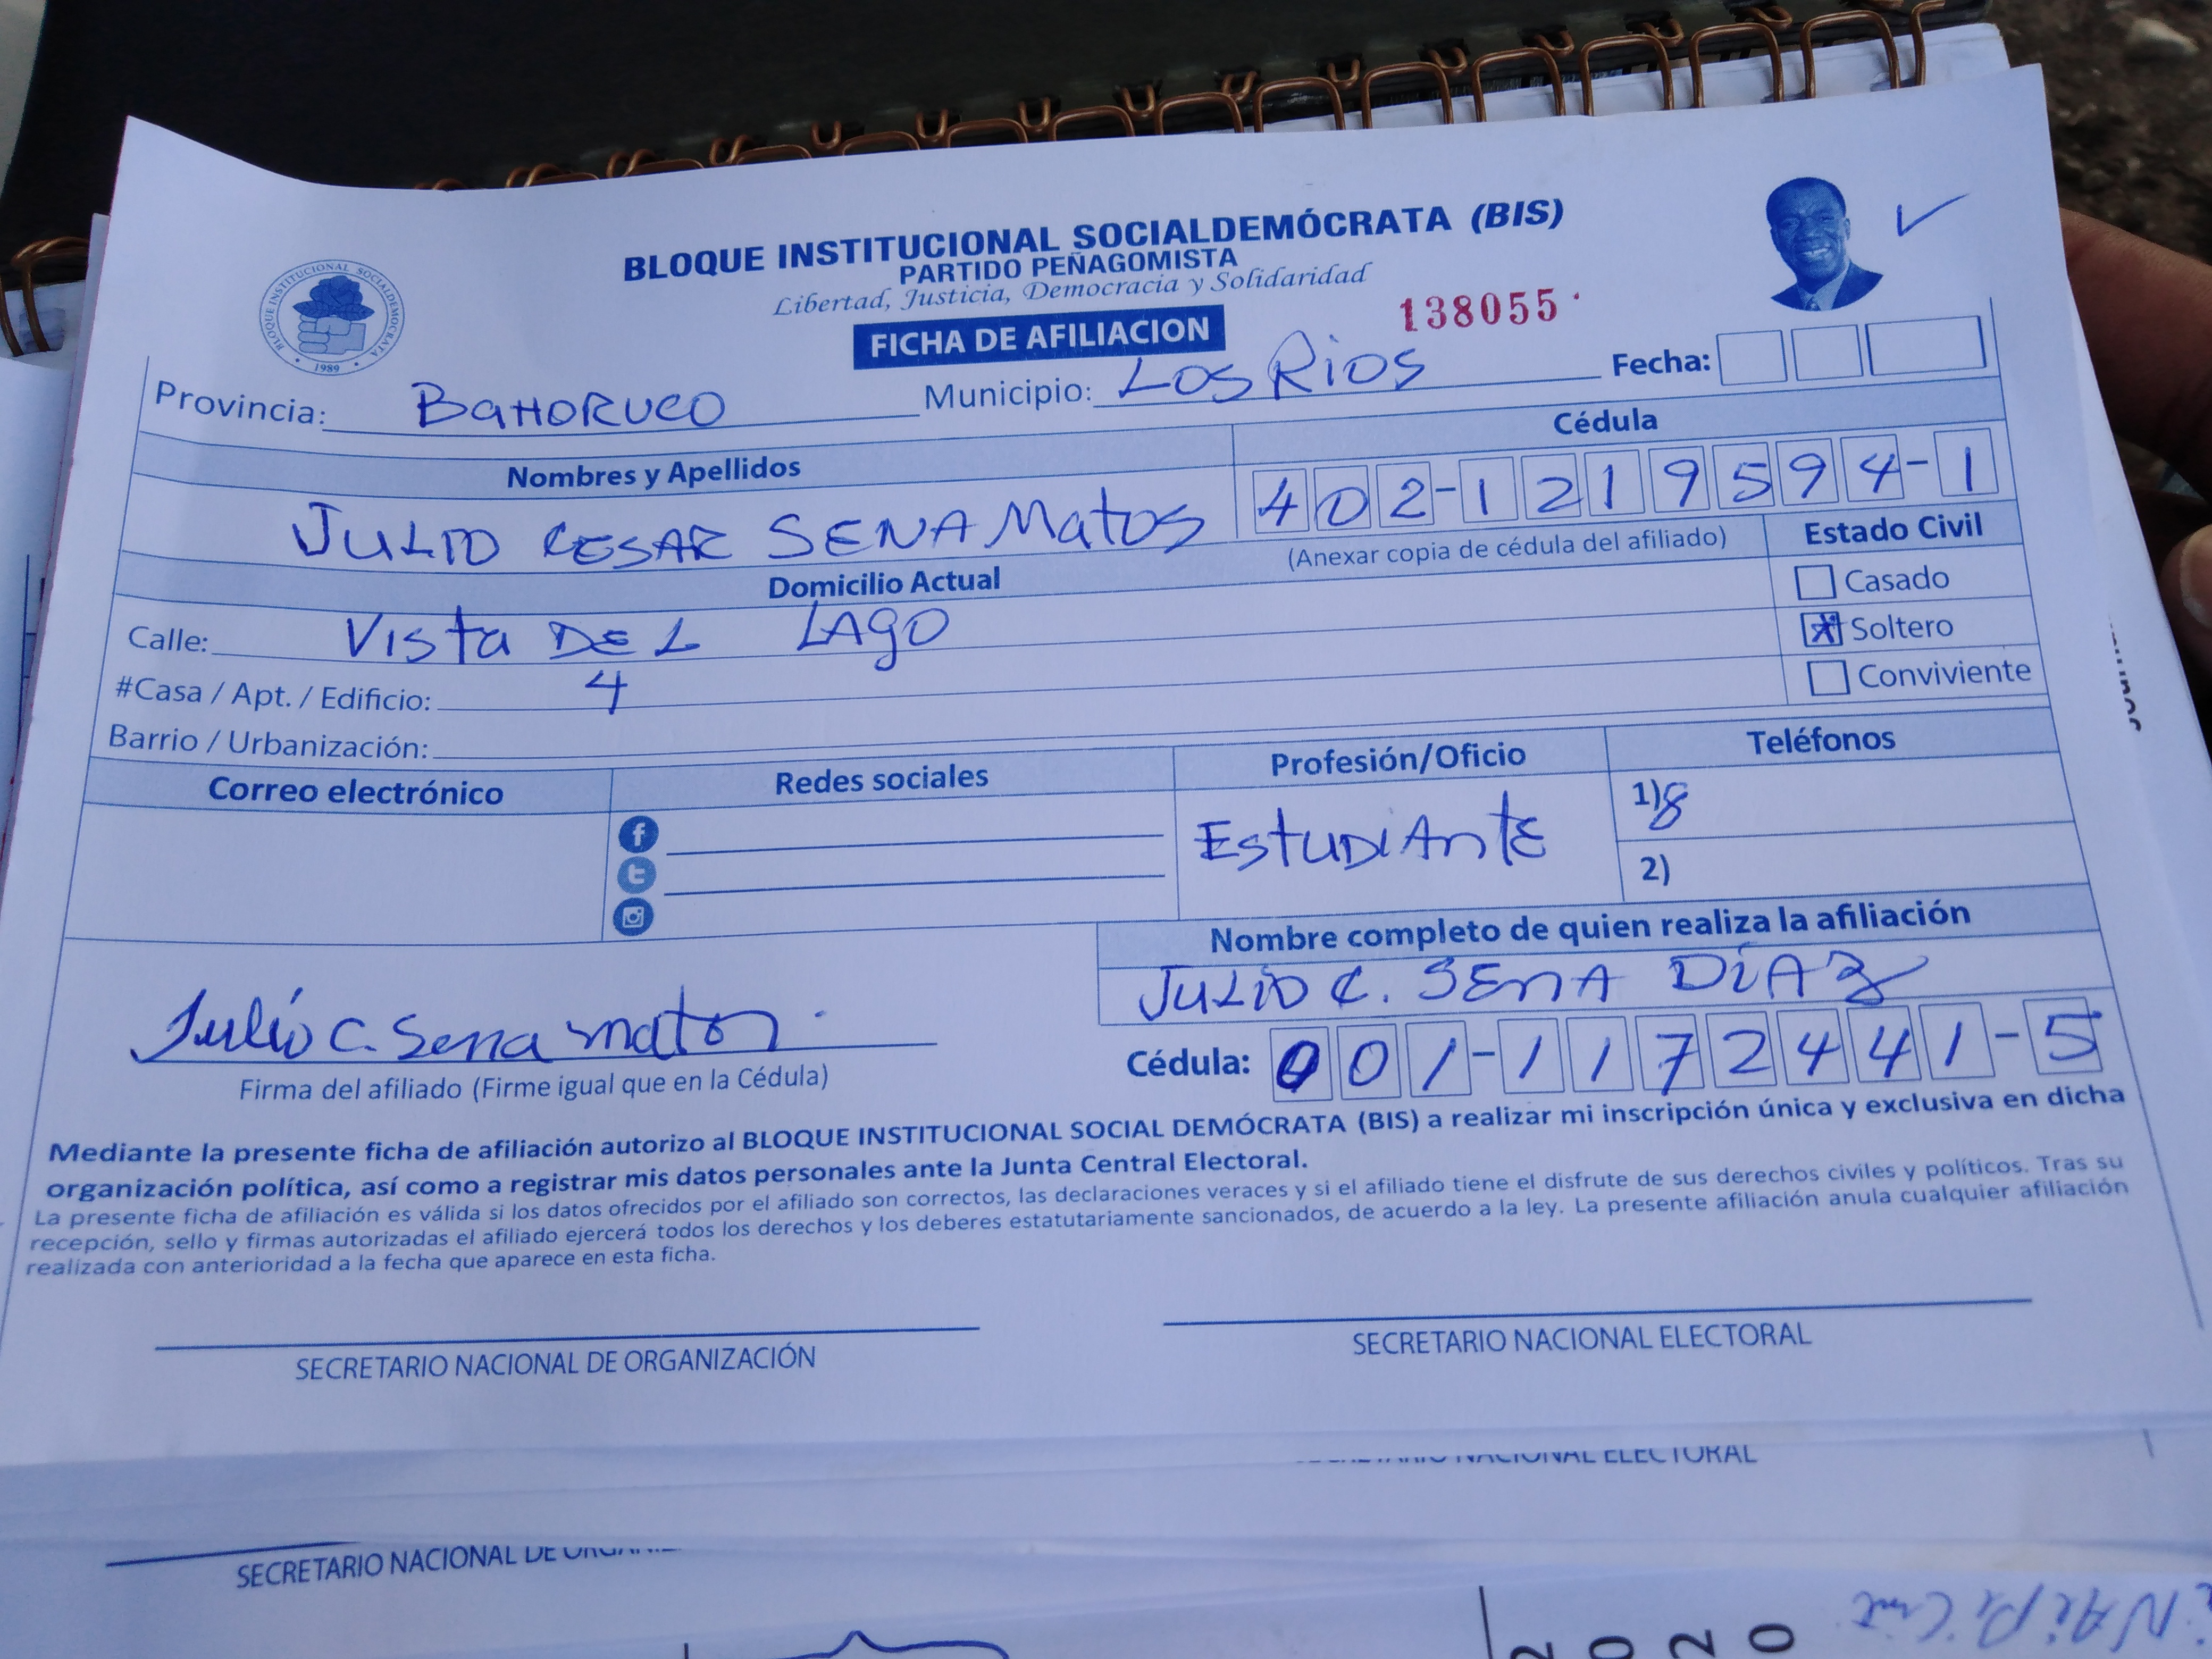 BLOQUE INSTITUCIONAL SOCIALDEMÓCRATA (BIS)
PARTIDO PEÑAGOMISTA
Libertad, Justicia, Democracia y Solidaridad
BLOQUE INSTITUCIONAL SOCIALDEMOCRATA
1989
138055
FICHA DE AFILIACION
Provincia: BaHORUCO Municipio: LOS RIOS Fecha:
Nombres y Apellidos Cédula
JULIO CESAR SENA Matos 402-1219594-1
(Anexar copia de cédula del afiliado)
Domicilio Actual Estado Civil
Calle: Vista DEL LAgO
Casado
Soltero
#Casa / Apt. / Edificio: 4
Conviviente
Barrio / Urbanización:
Correo electrónico Redes sociales Profesión/Oficio Teléfonos
EstUDiAntE 1) 8
2)
Nombre completo de quien realiza la afiliación
JULIO C. SENA DÍAZ
Julio C. Sena matos.
Firma del afiliado (Firme igual que en la Cédula)
Cédula: 001-1172441-5
Mediante la presente ficha de afiliación autorizo al BLOQUE INSTITUCIONAL SOCIAL DEMÓCRATA (BIS) a realizar mi inscripción única y exclusiva en dicha
organización política, así como a registrar mis datos personales ante la Junta Central Electoral.
La presente ficha de afiliación es válida si los datos ofrecidos por el afiliado son correctos, las declaraciones veraces y si el afiliado tiene el disfrute de sus derechos civiles y políticos. Tras su
recepción, sello y firmas autorizadas el afiliado ejercerá todos los derechos y los deberes estatutariamente sancionados, de acuerdo a la ley. La presente afiliación anula cualquier afiliación
realizada con anterioridad a la fecha que aparece en esta ficha.
SECRETARIO NACIONAL DE ORGANIZACIÓN SECRETARIO NACIONAL ELECTORAL
NACIONAL ELECTORAL
SECRETARIO NACIONAL DE
2020